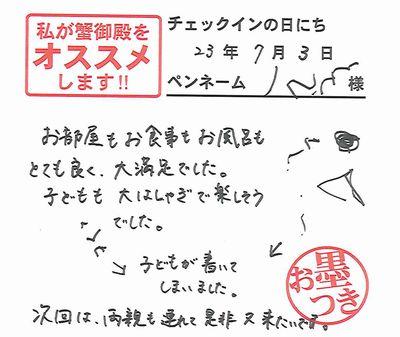 私が蟹御殿を
オススメ
します!!
チェックインの日にち
23年7月3日
ペンネーム 様
お部屋もお食事もお風呂も
とても良く、大満足でした。
子どもも大はしゃぎで楽しそう
でした。
子どもが書いて
しまいました。
お墨つき
次回は、両親も連れて是非又来たいです。